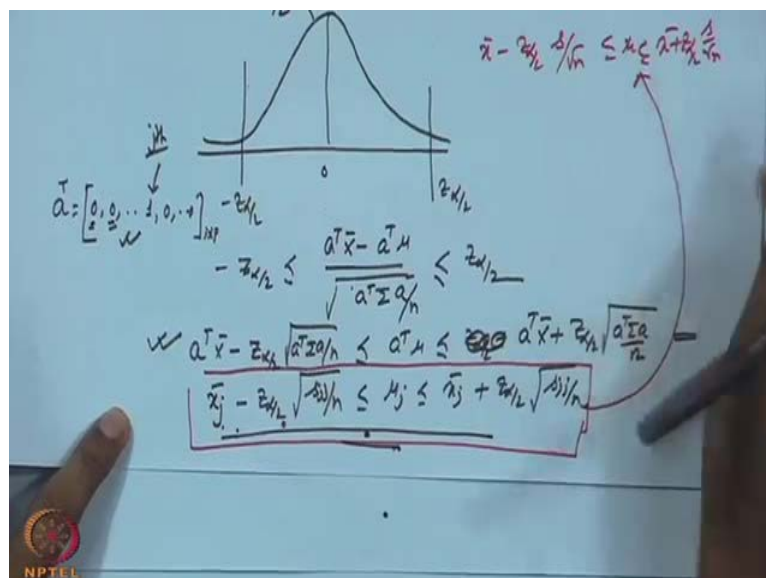 x̄ - z_α/2 s/√n ≤ μ ≤ x̄ + z_α/2 s/√n
jth
0
a^T = [0, 0, .. 1, 0, ..]_1×p
-z_α/2
z_α/2
-z_α/2 ≤ (a^T x̄ - a^T μ) / √(a^T Σ a/n) ≤ z_α/2
a^T x̄ - z_α/2 √(a^T Σ a/n) ≤ a^T μ ≤ a^T x̄ + z_α/2 √(a^T Σ a/n)
x̄j - z_α/2 √(sjj/n) ≤ μj ≤ x̄j + z_α/2 √(sjj/n)
NPTEL